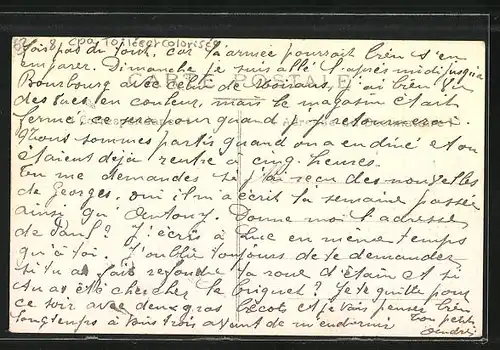 Cpa Toilée et Colorisée
fais pas du tout, car l'armée pourrait bien s'en
emparer. Dimanche je suis allé l'après midi jusqu'à
CARTE POSTALE
Bourbourg avec celui de j'ai bien vu
des vues en couleur, mais le magasin était
fermé ce sera pour quand j'y retournerai
Nous sommes partis quand on a eu diné et on
étaient déjà rentré à cinq heures.
Tu me demandes si j'ai reçu des nouvelles
de Georges, oui il m'a écrit la semaine passée
ainsi qu' Antony. Donne moi l'adresse
de Paul? J'écris à Luc en même temps
qu'à toi. J'oublie toujours de te demander
si tu as fait refondre ta roue d'étain et si
tu as été chercher le briquet? Je te quitte pour
ce soir avec deux gros bécots et je vais penser bien
longtemps à vous trois avant de m'endormir
ton petit
André